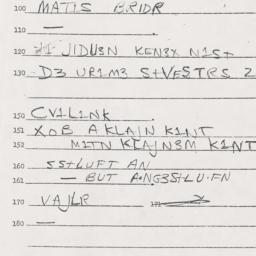 100 MATIS BRIDR
110 —
120 JIDU3N KEN3X N1S+
130 D3 UR1M3 S+VESTRS 2
150 CV1L1NK
151 XOB A KLAIN K1NT
152 M1TN KLAJN3M K1NT
160 SS+LUFT AN
161 — BUT A·NG3S+LU·FN
170 VAJLR 171
180 —